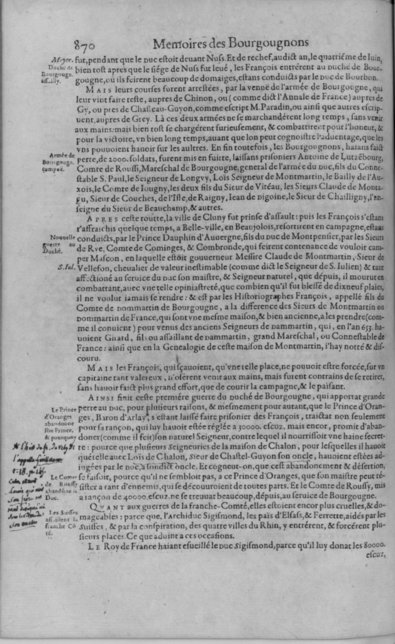 870 Memoires des Bourgougnons
fut, pendant que le Duc estoit devant Nuss. Et de rechef, audict an, le quatriéme de Iuin,
bien tost apres que le siége de Nuss fut levé, les François entrérent au duché de Bour-
gougne, où ils feirent beaucoup de domaiges, estans conduicts par le Duc de Bourbon.
MAIS leurs courses furent arrestées, par la venue de l'armée de Bourgougne, qui
leur vint faire teste, aupres de Chinon, ou (comme dict l'Annale de France) aupres de
Gy, ou pres de Chasteau-Guyon, comme escript M. Paradin, ou ainsi que autres escrip-
uent, aupres de Grey. Là ces deux armées ne se marchandérent long temps, sans venir
aux mains: mais bien tost se chargérent furieusement, & combattirent pour l'honeur, &
pour la victoire, vn bien long temps, avant que lon peut cognoistre l'aduentage, que les
vns pouuoient hauoir sur les aultres. En fin toutefois, les Bourgougnons, harans faict
perte, de 2000. soldats, furent mis en fuitte, laissans prisonniers Antoine de Lutzébourg,
Comte de Roussi, Mareschal de Bourgougne, general de l'armée du Duc, fils du Conne-
stable S. Paul, le Seigneur de Longvy, Lois Seigneur de Montmartin, le Bailly de l'Au-
xois, le Comte de Iougny, les deux fils du Sieur de Viteau, les Sieurs Claude de Monta-
gu, Sieur de Couches, de l'Isle, de Raigny, Iean de Digoine, le Sieur de Chaslligny, l'an-
seigne du Sieur de Beauchamp, & autres.
APRES ceste routte, la ville de Cluny fut prinse d'assault: puis les François s'estans
r'affraichis quelque temps, a Belle-ville, en Beaujolois, resortirent en campagne, estans
conduicts, par le Prince Dauphin d'Auvergne, fils du Duc de Montpensier, par les Sieurs
de Rye, Comte de Cominges, & Combronde, qui feirent contenance de vouloir cam-
per Mascon, en laquelle estoit gouverneur Messire Claude de Montmartin, Sieur de
Vellefon, chevalier de valeur inestimable (comme dict le Seigneur de S. Iulien) & tant
affectioné au service du Duc son maistre, & Seigneur naturel, que depuis, il mourut en
combattant, avec vne telle opiniastreté, que combien qu'il fut blessé de dixneuf plaies,
il ne voulut iamais se rendre: & est par les Historiographes François, appellé fils du
Comte de Dommartin de Bourgougne, a la difference des Sieurs de Montmartin ou
Dommartin de France, qui sont vne mesme maison, & bien ancienne, a les prendre (com-
me il convient) pour venus des anciens Seigneurs de Dammartin, qui, en l'an 633. ha-
uoient Guard, fil: ou assaillant de Dammartin, grand Mareschal, ou Connestable de
France: ainsi que en la Genealogie de ceste maison de Montmartin, l'hay notté & dis-
couru.
MAIS les François, qui sçauoient, qu'vne telle place, ne pouuoit estre forcée, sur vn
capitaine tant valereux, n'osérent venir aux mains, mais furent contrains de se retirer,
sans hauoir faict plus grand effort, que de courir la campagne, & le paisant.
AINSI finit ceste première guerre du duché de Bourgougne, qui apportat grande
perte au Duc, pour plusieurs raisons, & mesmement pour autant, que le Prince d'Oran-
ges, Baron d'Arlay, s'estant laissé faire prisonier des François, traictat non seulement
pour sa rançon, qui luy hauoit estée réglée a 30000. escuz. mais encor, promit d'aban-
donner (comme il feit) son naturel Seigneur, contre lequel il nourrissoit vne haine secret-
te: pource que plusieurs Seigneuries de la maison de Chalon, pour lesquelles il hauoit
querelle avec Lois de Chalon, Sieur de Chastel-Guyon son oncle, hauoient estées ad-
iugées par le Duc, a sondict oncle. Et cogneut-on, que cest abandonnement & défection,
se faisoit, pource qu'il ne sembloit pas, a ce Prince d'Oranges, que son maistre peut ré-
sister a tant d'ennemis, qui se découuroient de toutes parts. Et le Comte de Roussi, mis
a rançon de 40000. escuz. ne se trouuat beaucoup, depuis, au service de Bourgougne.
QUANT aux guerres de la Franche-Comté, elles estoient encor plus cruelles, & do-
mageables: parce que, l'Archiduc Sigismond, les païs d'Elsas, & Ferrette, aidés par les
Suisses, & par la conspiration, des quatre villes du Rhin, y entrérent, & forcérent plu-
sieurs places. Ce que aduint a ces occasions.
LE Roy de France haiant esueillé le Duc Sigismond, parce qu'il luy donat les 80000.
escuz,
Duché de
Bourgougne
assailly.
Armée de
Bourgougne,
rompue.
Nouuelle
guerre au
Duché.
S. Iul.
Le Prince
d'Oranges
abandonne
son Prince,
& pourquoy
Le Comte
de Roussi
abandone le
Duc.
Les Suisses
assaillent la
franche Co-
té.